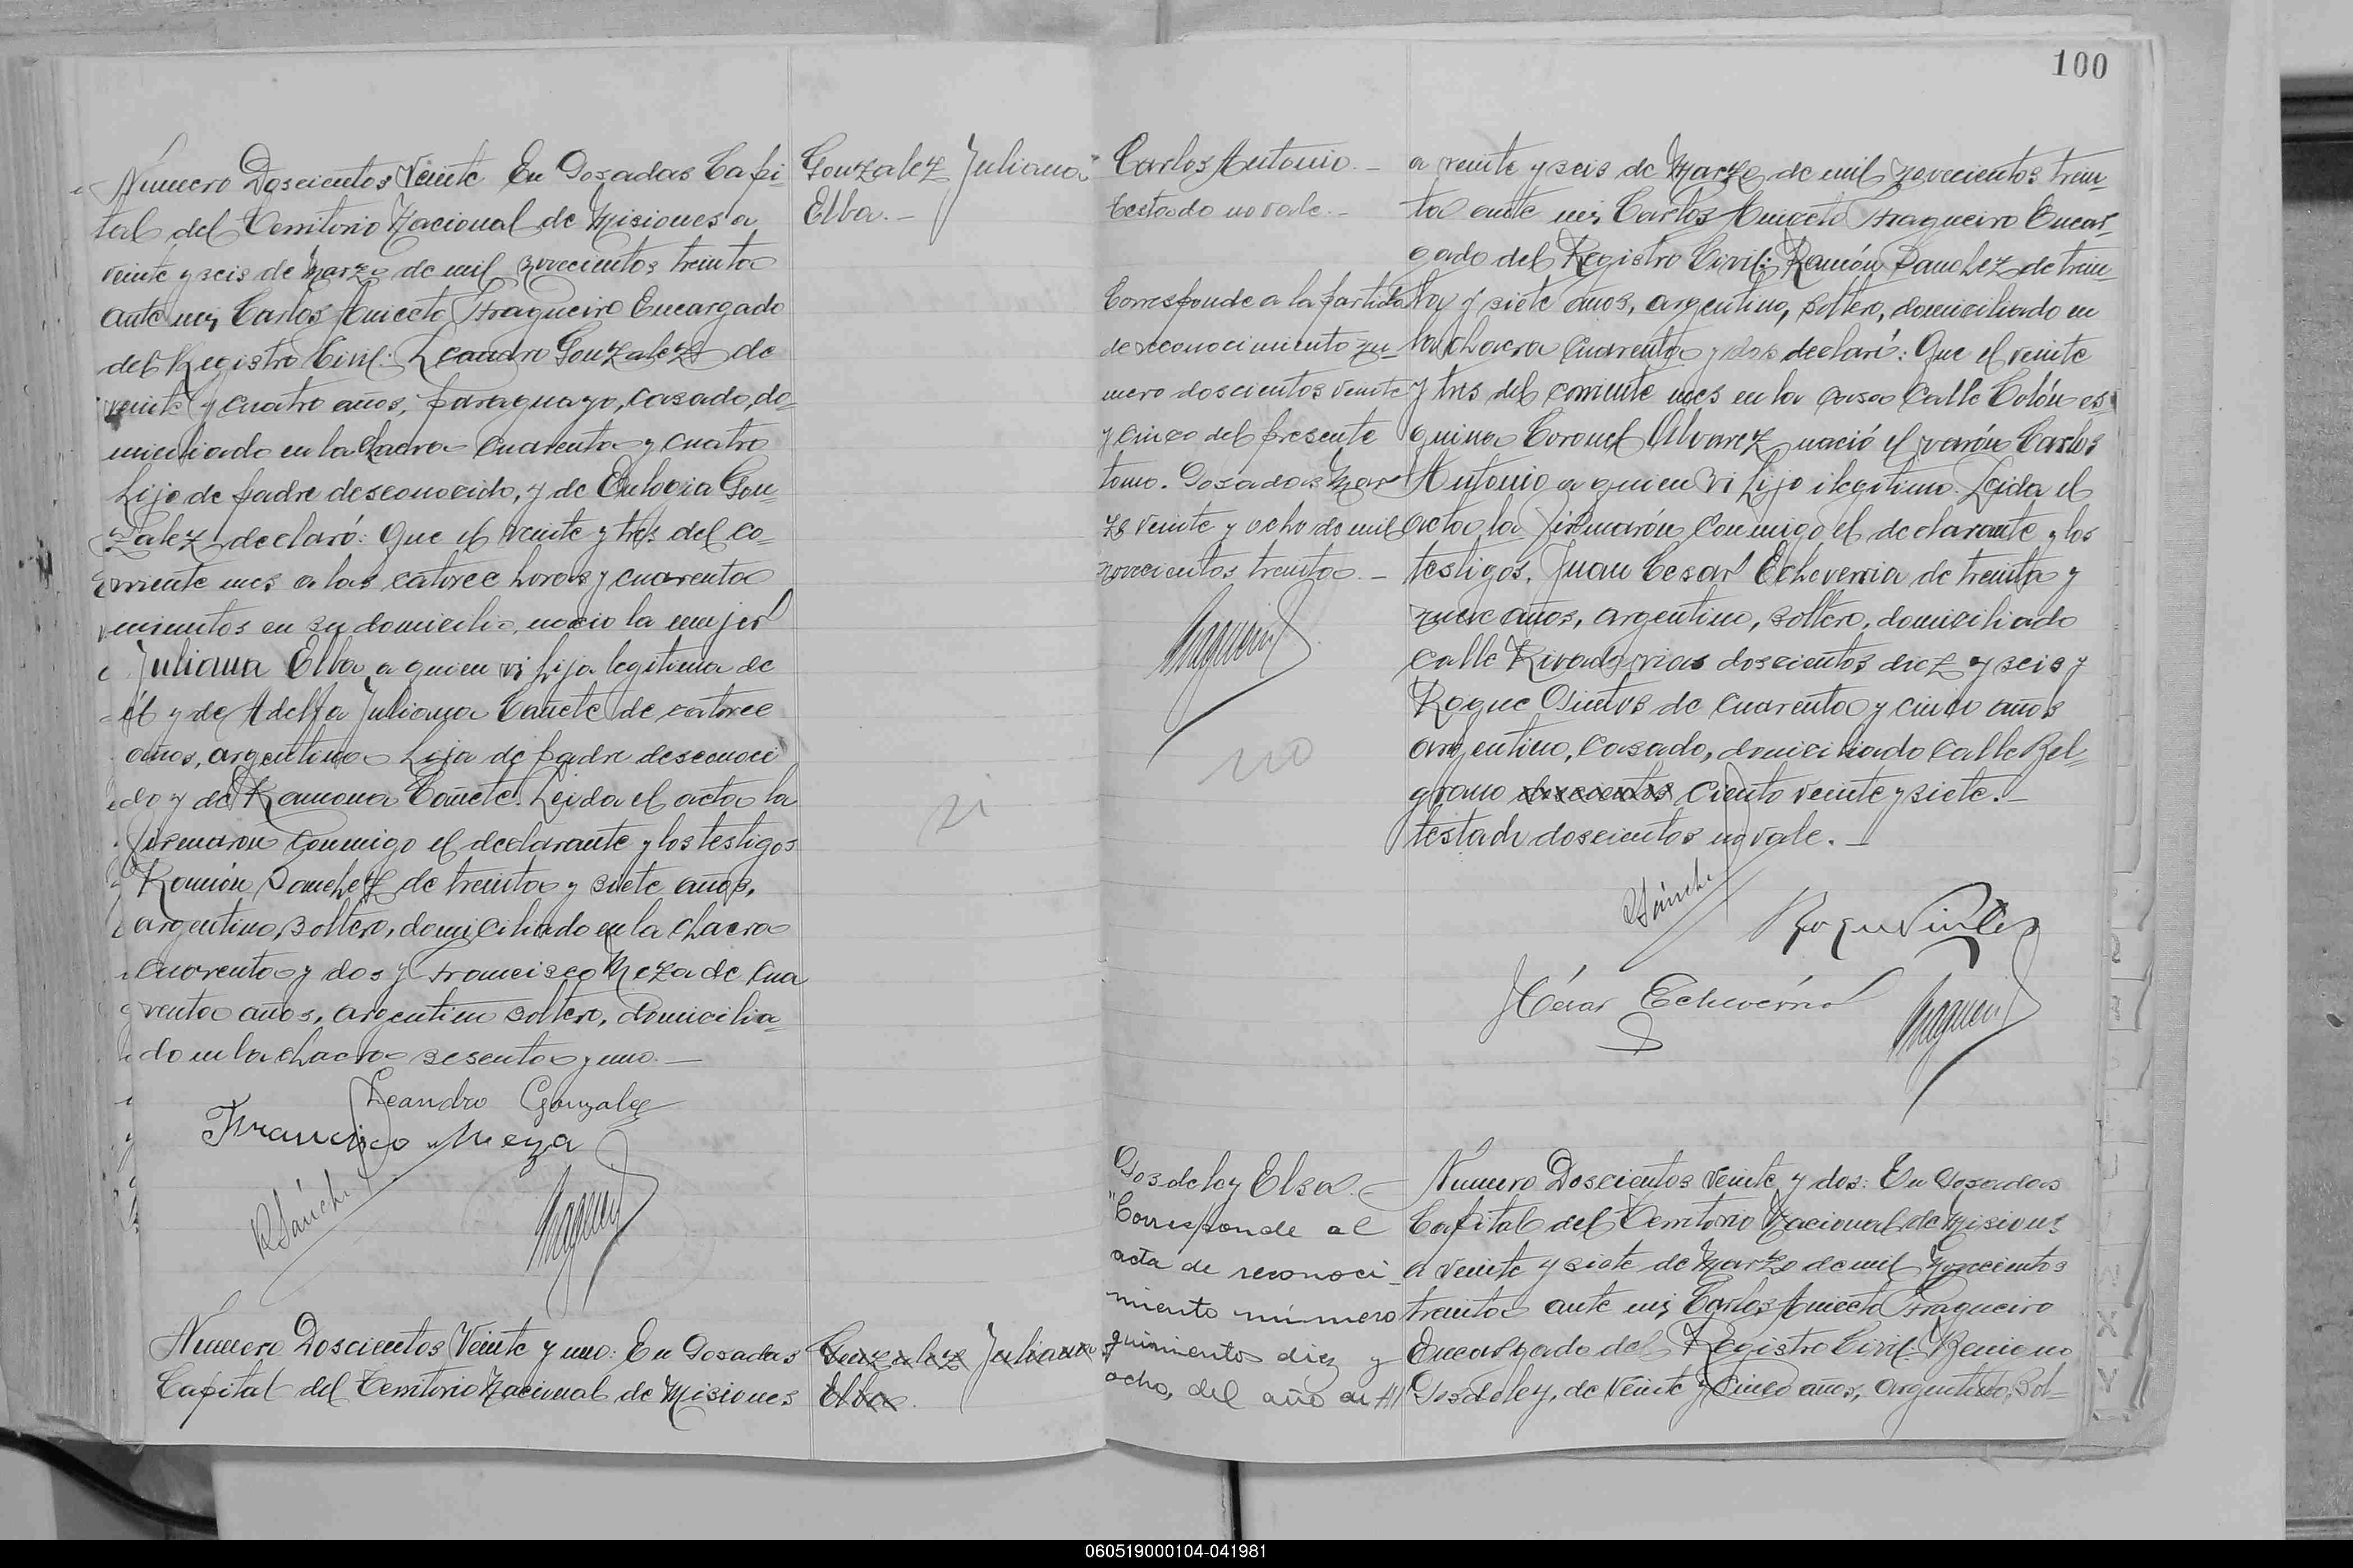 100
Número Doscientos Veinte En Posadas Capi-
tal del Territorio Nacional de Misiones a
veinte y seis de Marzo de mil novecientos treinta
ante mi, Carlos Aniceto Fragueiro Encargado
del Registro Civil: Leandro Gonzalez de
veinte y cuatro años, paraguayo, casado, do-
miciliado en la chacra cuarenta y cuatro
hijo de padre desconocido, y de Eulogia Gon-
zalez declaró: Que el veinte y tres del co-
rriente mes a las catorce horas y cuarenta
minutos en su domicilio, nació la mujer
Juliana Elba, a quien vi hija legitima de
él y de Adelfa Juliana Cañete de catorce
años, argentina hija de padre desconoci
do y de Ramona Cañete. Leida el acta la
firmaron conmigo el declarante y los testigos
Ramón Sanchez de treinta y siete años,
argentino, soltero, domiciliado en la chacra
cuarenta y dos y Francisco Meza de cua
renta años, argentino soltero, domicilia-
do en la chacra sesenta y uno.—
Leandro Gonzalez
Francisco Meza
R Sánchez
Número Doscientos Veinte y uno: En Posadas
Capital del Territorio Nacional de Misiones
Gonzalez Juliana
Elba.-
Gonzalez Juliana
Elba.
Carlos Antonio.-
testado no vale.-
Corresponde a la partida
de reconocimiento nu-
mero doscientos veinte
y cinco del presente
tomo. Posadas Mar
zo veinte y ocho de mil
novecientos treinta.-
no
a veinte y seis de Marzo de mil novecientos trein-
ta ante mi, Carlos Aniceto Fragueiro Encar-
gado del Registro Civil: Ramón Sanchez de trein-
ta y siete años, argentino, soltero, domiciliado en
la chacra cuarenta y dos declaró: Que el veinte
y tres del corriente mes en la casa calle Colón es-
quina Coronel Alvarez nació el varón Carlos
Antonio a quien vi hijo ilegitimo. Leida el
acta la firmarón conmigo el declarante y los
testigos, Juan Cesar Echeverria de treinta y
nueve años, argentino, soltero, domiciliado
calle Rivadavia doscientos diez y seis y
Roque de cuarenta y cinco años
argentino, casado, domiciliado calle Bel-
grano doscientos ciento veinte y siete.-
testado doscientos no vale.-
R Sánchez
Roque
J César Echeverria
Elsa.-
"Corresponde al
acta de reconoci-
miento número
quinientos diez y
ocho, del año
Número Doscientos Veinte y dos: En Posadas
Capital del Territorio Nacional de Misiones
a veinte y siete de Marzo de mil novecientos
treinta ante mi, Carlos Aniceto Fragueiro
Encargado del Registro Civil: Benigno
de veinte y cinco años, argentino, sol-
060519000104-041981